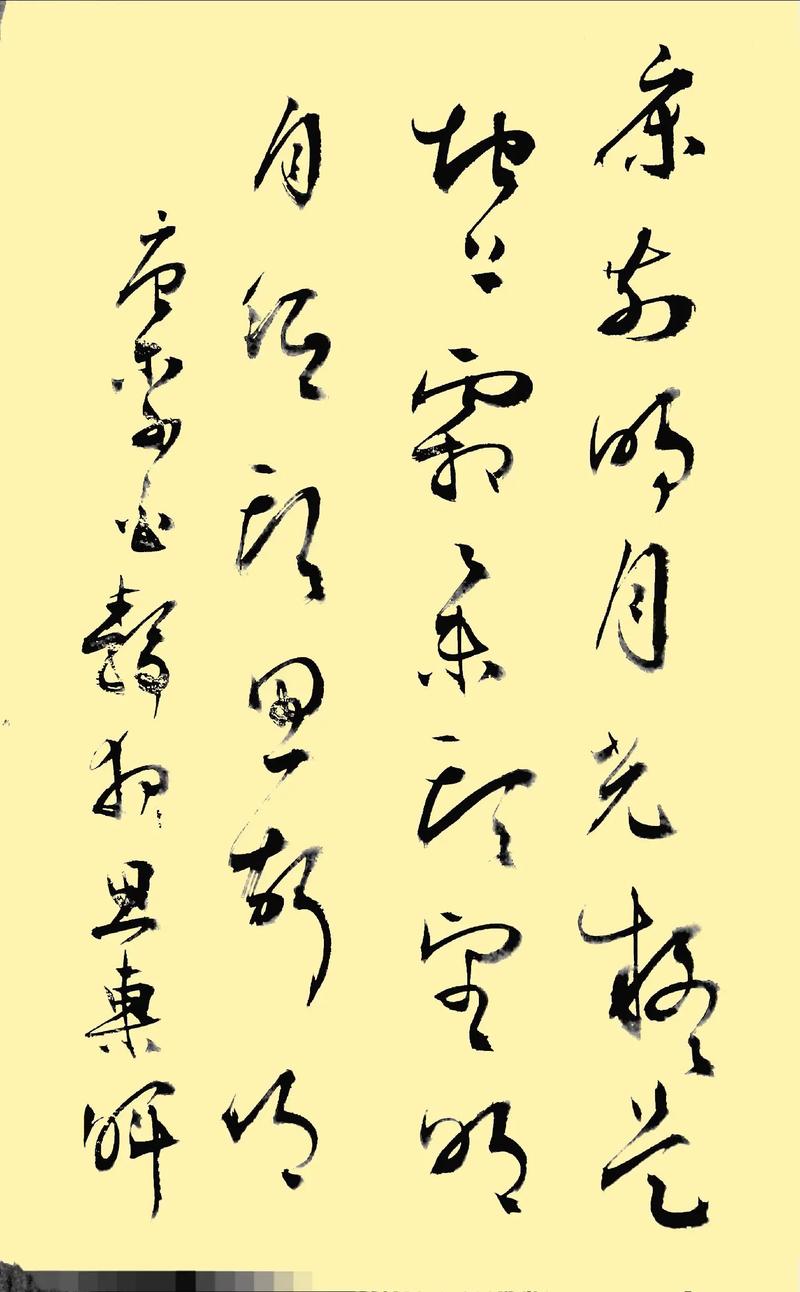 床前明月光疑是
地上霜舉頭望明
月低頭思故鄉
唐李白靜夜思東暉